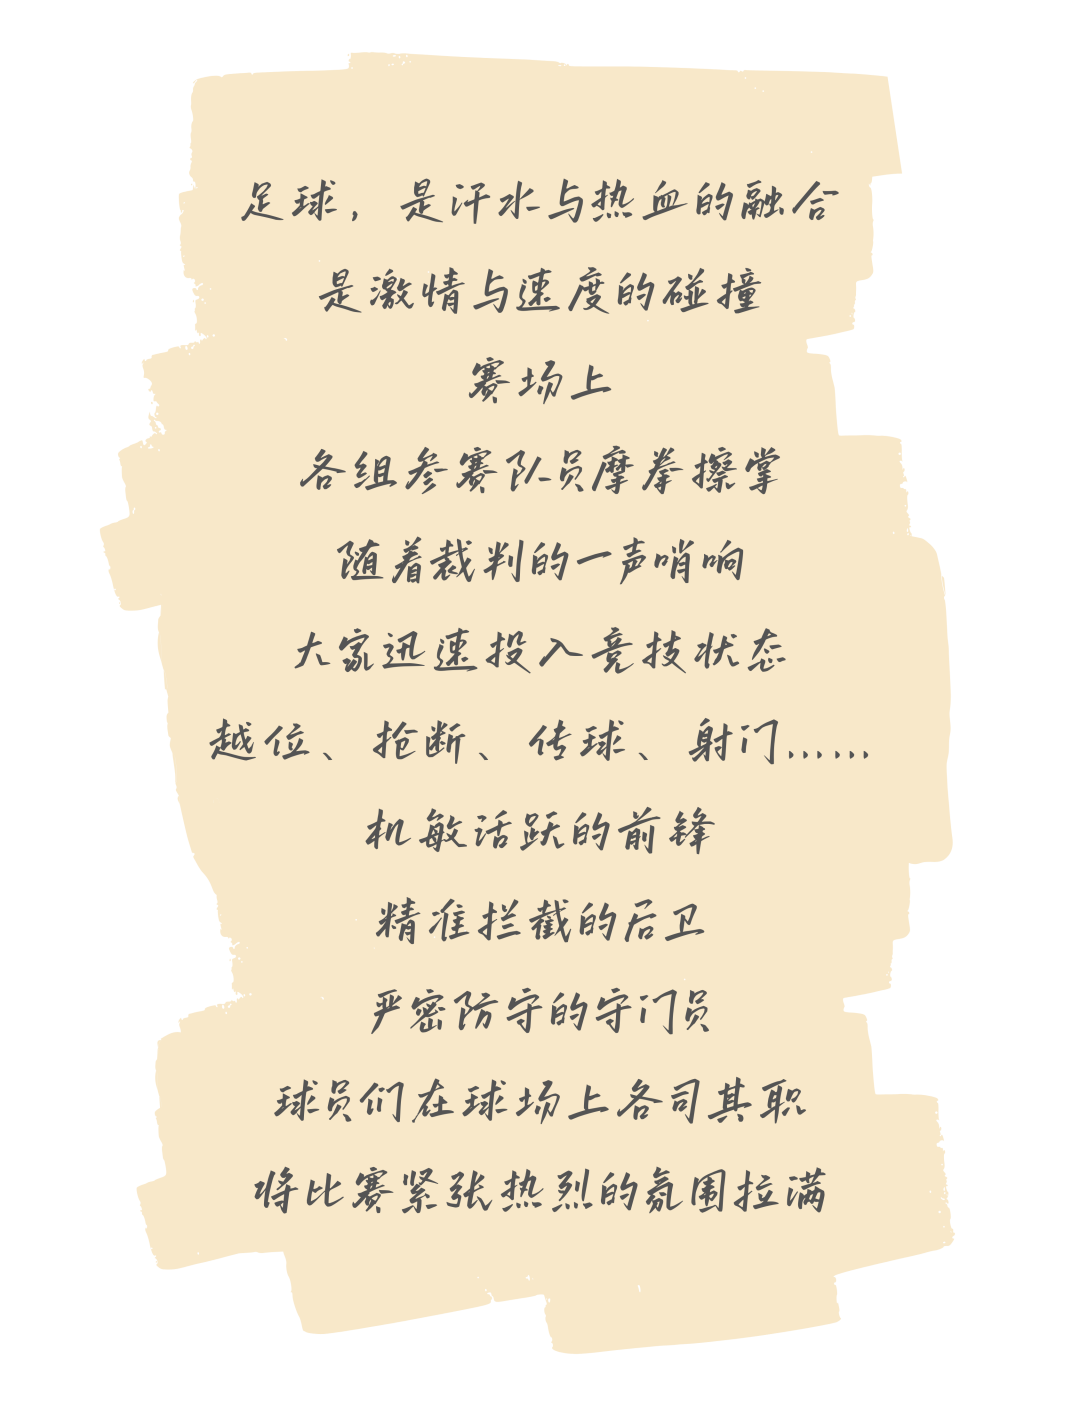 足球，是汗水与热血的融合
是激情与速度的碰撞
赛场上
各组参赛队员摩拳擦掌
随着裁判的一声哨响
大家迅速投入竞技状态
越位、抢断、传球、射门……
机敏活跃的前锋
精准拦截的后卫
严密防守的守门员
球员们在球场上各司其职
将比赛紧张热烈的氛围拉满